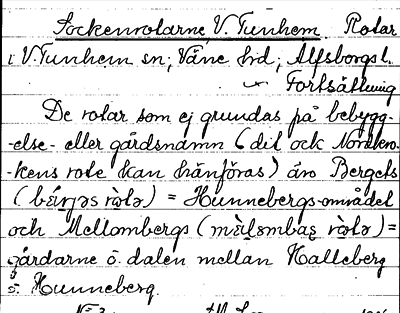 Sockenrotarne V. Tunhem. Rotar
i V. Tunhem sn, Väne hd, Älfsborgs l.
Fortsättning
De rotar som ej grundas på bebygg-
-else- eller gårdsnamn (dit ock Nordkro-
-kens rote kan hänföras) äro Bergets
= Hunnebergs-området
och Mellombergs =
gårdarne ö. dalen mellan Halleberg
Hunneberg.